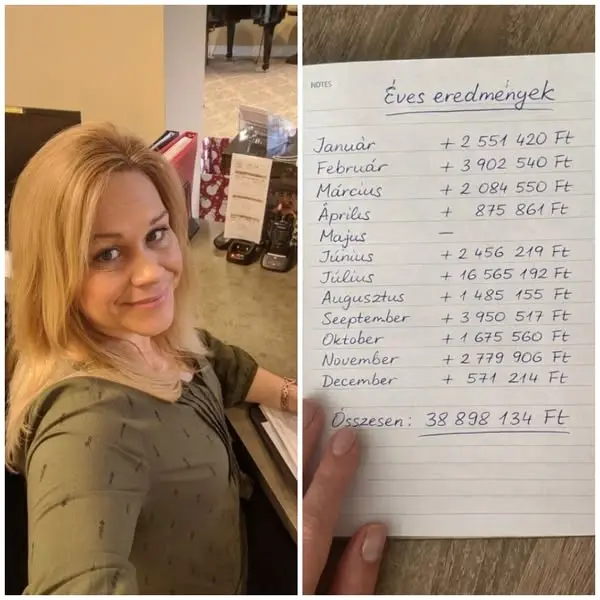 NOTES
Éves eredmények
Január + 2 551 420 Ft
Február + 3 902 540 Ft
Március + 2 084 550 Ft
Április + 875 861 Ft
Majus —
Június + 2 456 219 Ft
Július + 16 565 192 Ft
Augusztus + 1 485 155 Ft
Seeptember + 3 950 517 Ft
Oktober + 1 675 560 Ft
November + 2 779 906 Ft
December + 571 214 Ft
Összesen: 38 898 134 Ft